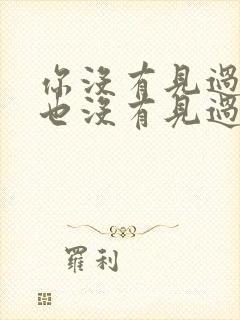 你沒有見過
也沒有見過
羅利